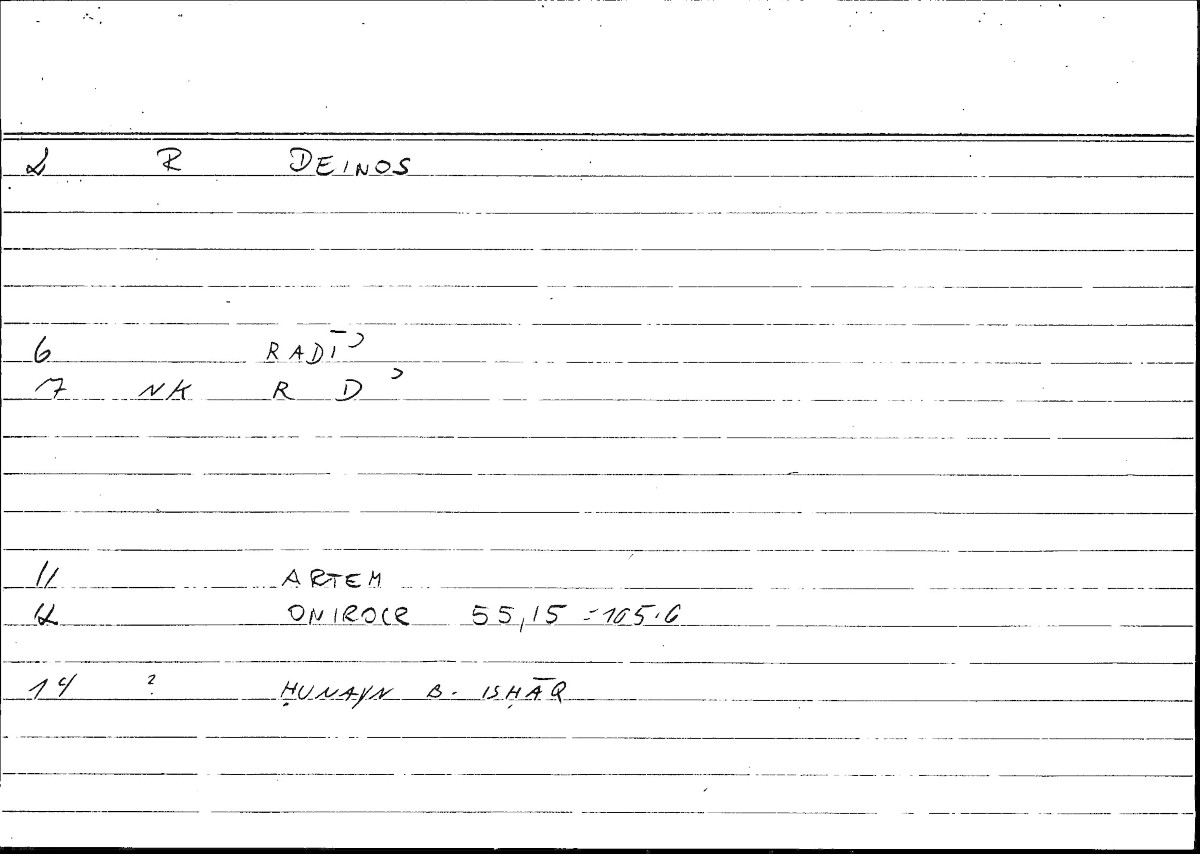 2 R DEINOS
6 RADĪʾ
7 NK R D ʾ
11 ARTEM
12 ONIROCR 55,15 = 105.6
14 ? ḤUNAYN B. ISḤĀQ